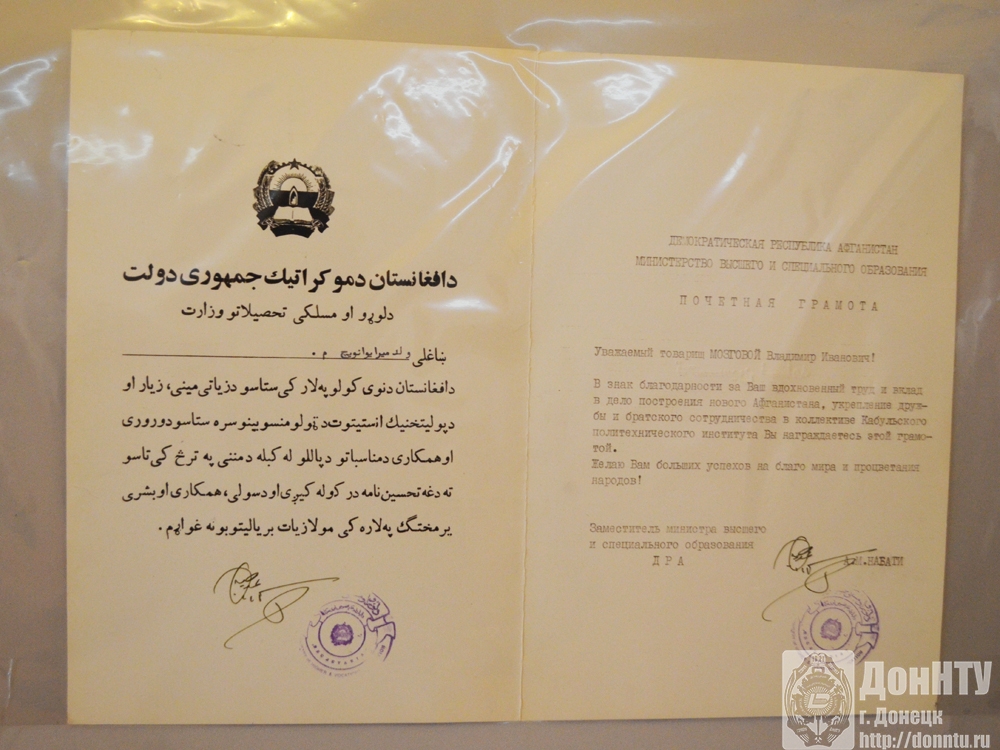 دافغانستان دموکراتیک جمهوری دولت
دلوړو او مسلکی تحصیلاتو وزارت
ښاغلی
دافغانستان دنوی کولو په لار کی ستاسو دزیاتی مینی، زیار او
دپولیتخنیک انستیتوت د ټولو منسوبینو سره ستاسو دوروری
او همکاری دمناسباتو د پاللو له کبله دمننی په ترڅ کی تاسو
ته دغه تحسین نامه در کوله کیږی او دسولی، همکاری او بشری
پرمختګ په لاره کی مو لازیات بریالیتوبونه غواړم.
ДЕМОКРАТИЧЕСКАЯ РЕСПУБЛИКА АФГАНИСТАН
МИНИСТЕРСТВО ВЫСШЕГО И СПЕЦИАЛЬНОГО ОБРАЗОВАНИЯ
ПОЧЕТНАЯ ГРАМОТА
Уважаемый товарищ МОЗГОВОЙ Владимир Иванович!
В знак благодарности за Ваш вдохновенный труд и вклад
в дело построения нового Афганистана, укрепление друж-
бы и братского сотрудничества в коллективе Кабульского
политехнического института Вы награждаетесь этой грамо-
той.
Желаю Вам больших успехов на благо мира и процветания
народов!
Заместитель министра высшего
и специального образования
ДРА
А.М.НАБАТИ
ДонНТУ
г. Донецк
http://donntu.ru